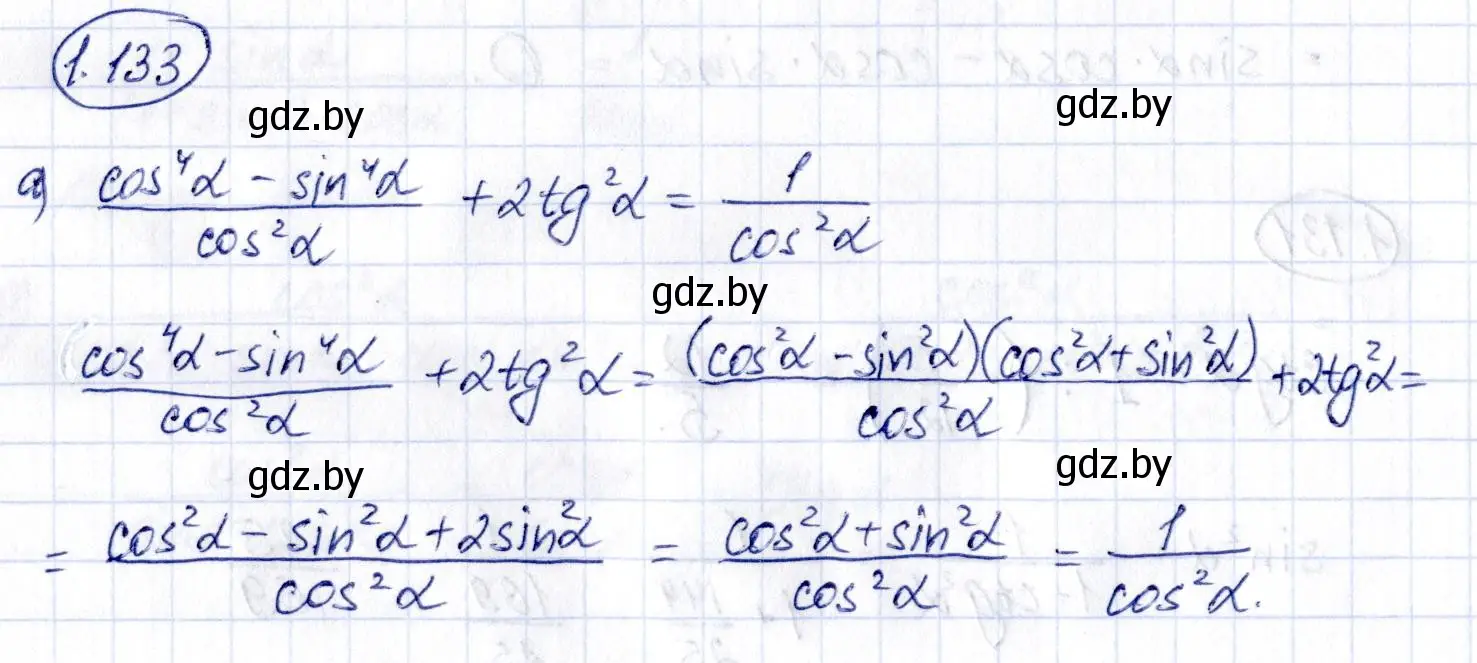 1.133
gdz.by gdz.by
a) (cos⁴α − sin⁴α)/(cos²α) + 2tg²α = 1/(cos²α)
gdz.by
(cos⁴α − sin⁴α)/(cos²α) + 2tg²α = ((cos²α − sin²α)(cos²α + sin²α))/(cos²α) + 2tg²α =
gdz.by gdz.by
= (cos²α − sin²α + 2sin²α)/(cos²α) = (cos²α + sin²α)/(cos²α) = 1/(cos²α).